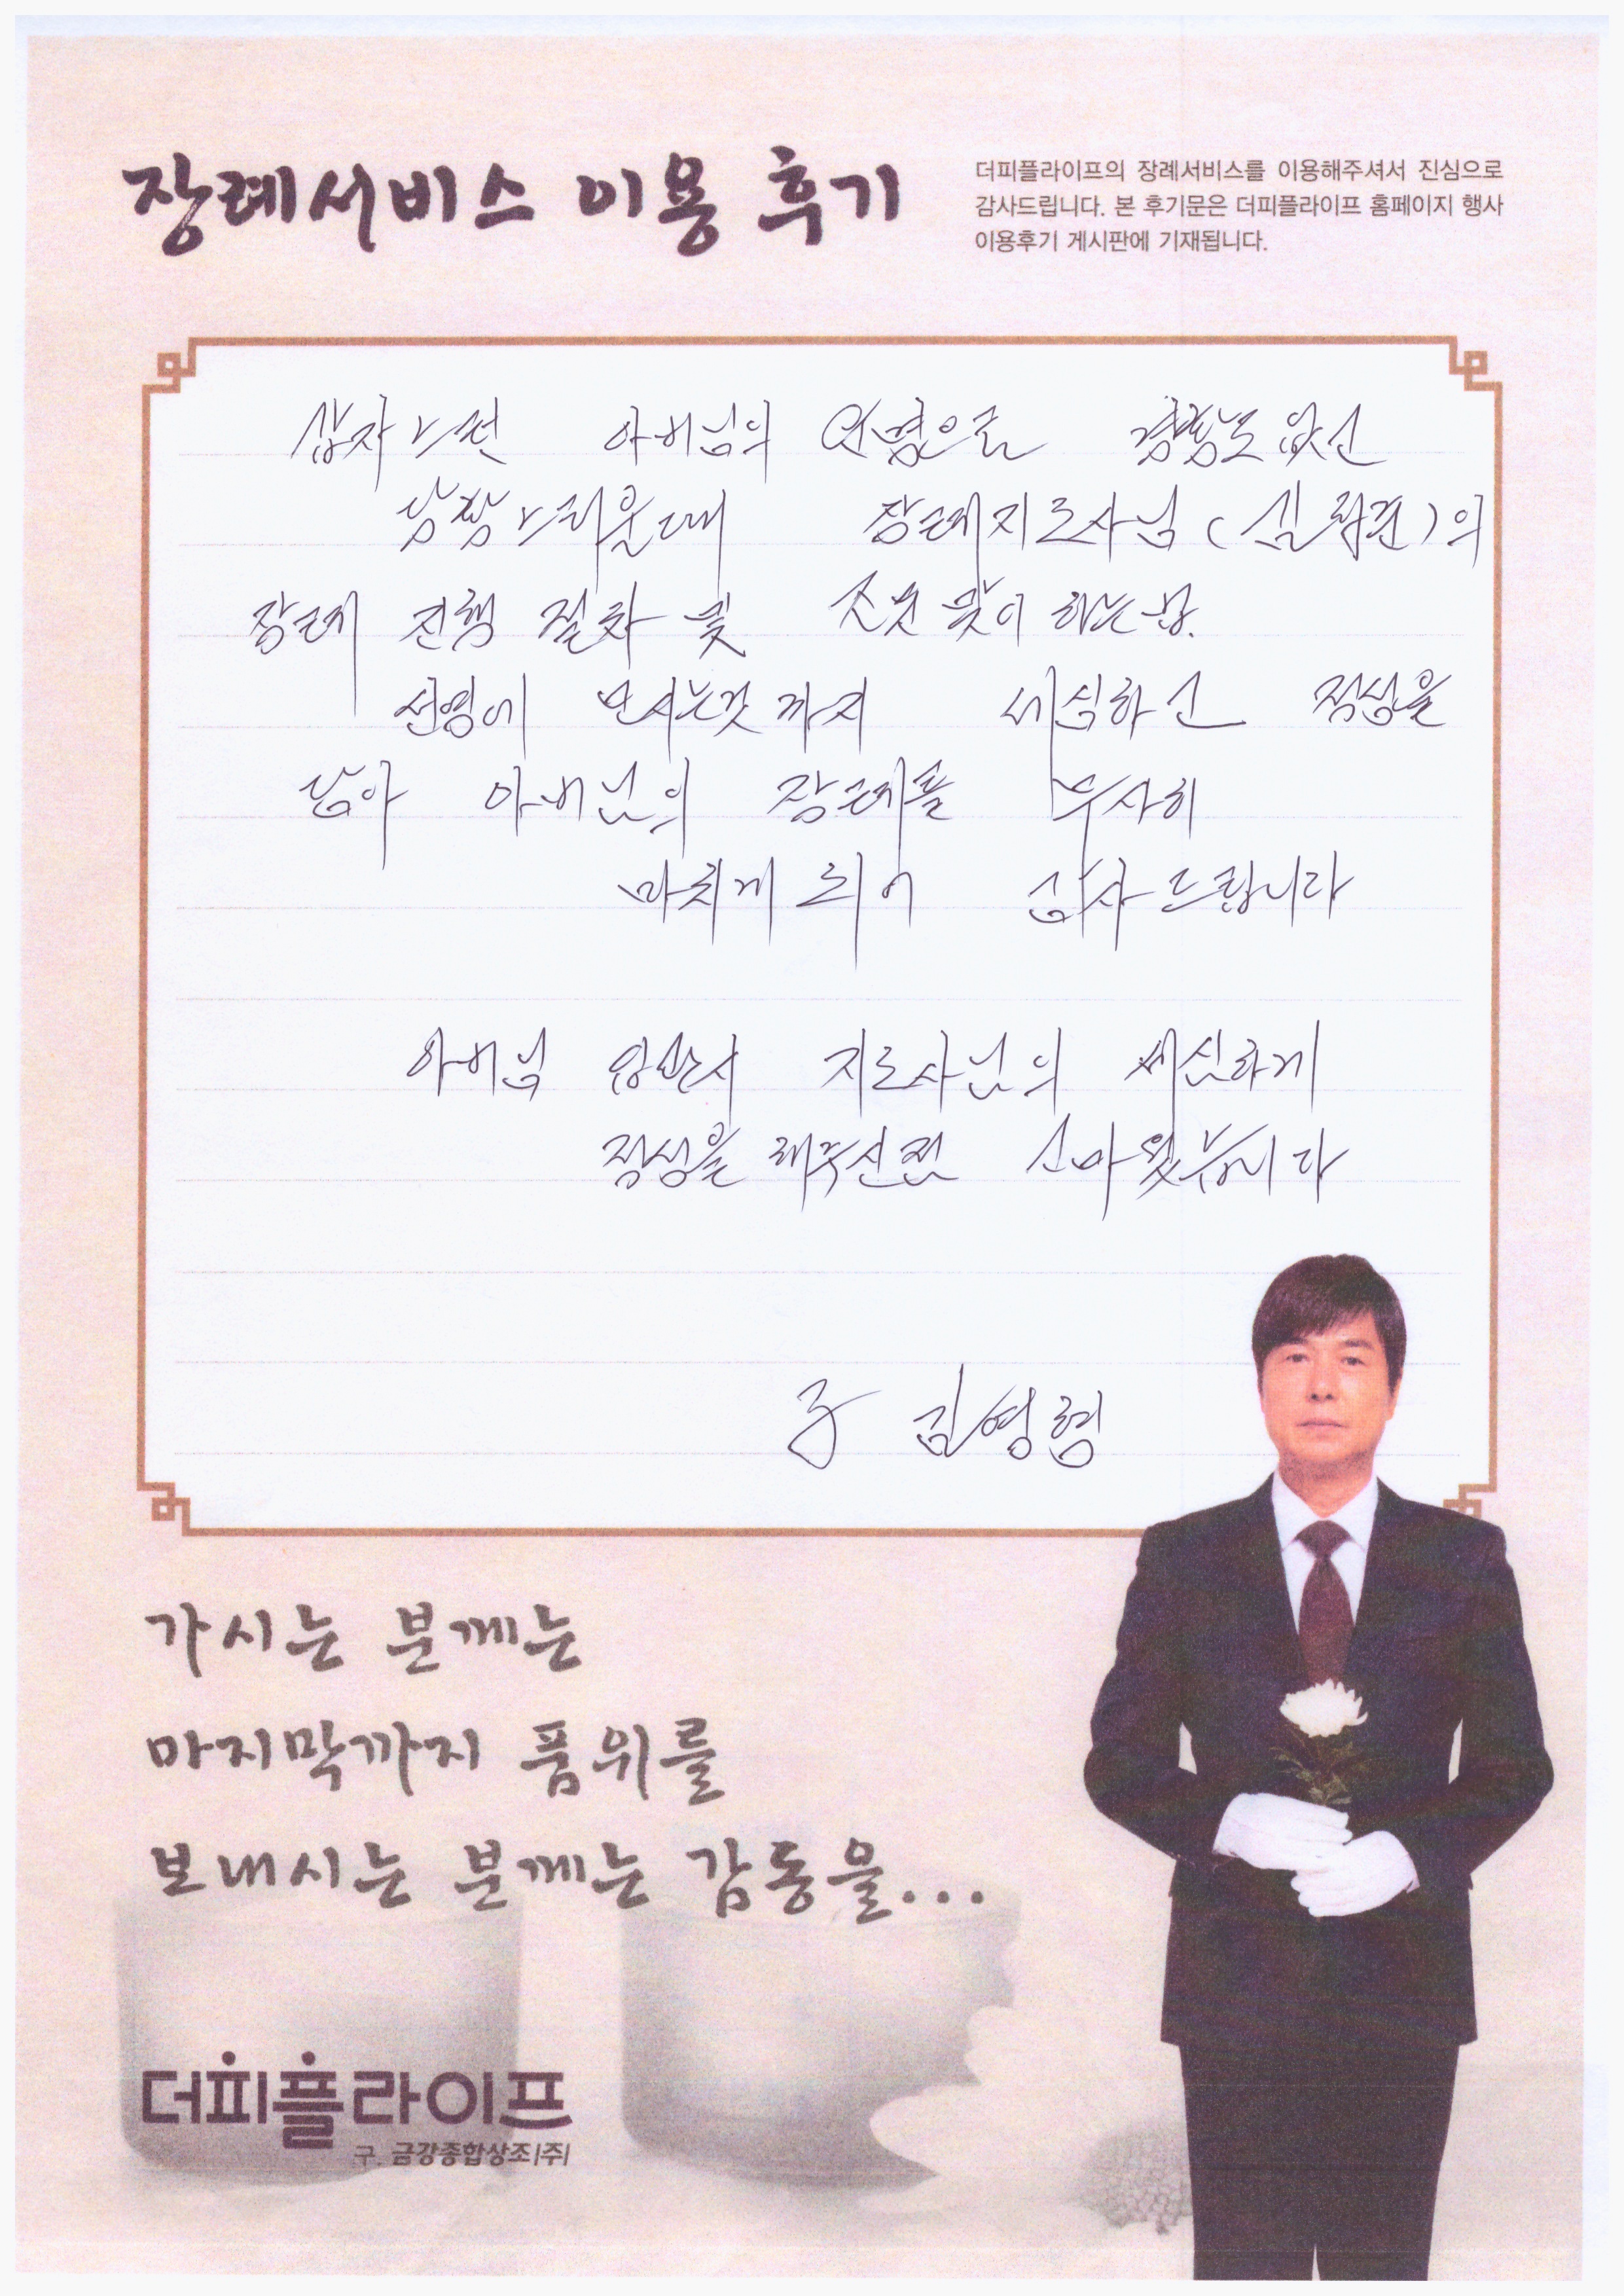 장례서비스 이용 후기
더피플라이프의 장례서비스를 이용해주셔서 진심으로
감사드립니다. 본 후기문은 더피플라이프 홈페이지 행사
이용후기 게시판에 기재됩니다.
아버님의 경황도 없신
장례지도사님 ( )의
장례 진행 절차 및 하는법.
선영에 모시는것 까지 세심하신 정성을
담아 아버님의 장례를 무사히
마치게 되어 감사드립니다
아버님 지도사님의 세심하게
정성을 해주신점
子 김영형
가시는 분께는
마지막까지 품위를
보내시는 분께는 감동을...
더피플라이프
구. 금강종합상조|주|